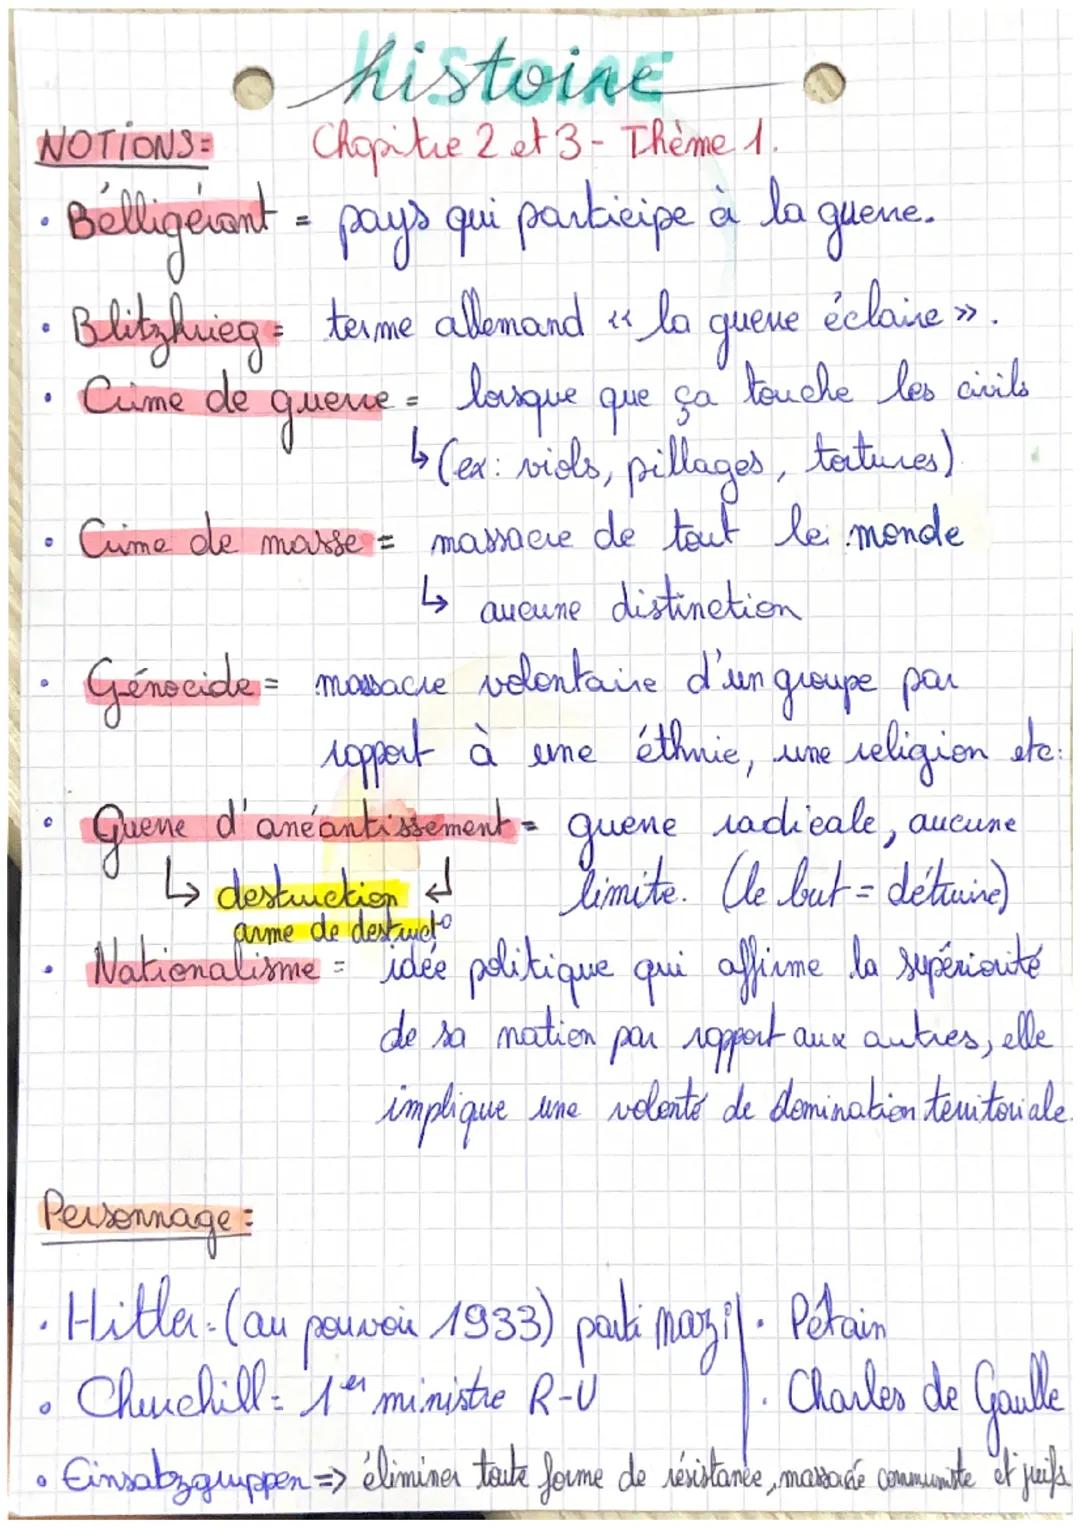 histoire
NOTIONS=
Chapitre 2 et 3 - Thème 1.
• Bélligérant = pays qui participe à la guerre.
• Blitzkrieg = terme allemand « la guerre éclaire ».
• Crime de guerre = lorsque que ça touche les civils
↳ (ex: viols, pillages, tortures)
• Crime de masse = massacre de tout le monde
↳ aucune distinction
• Génocide = massacre volontaire d'un groupe par
rapport à une éthnie, une religion etc.
• Guerre d'anéantissement = guerre radicale, aucune
↳ destruction ↲ limite. (le but = détruire)
arme de destruct°
• Nationalisme = idée politique qui affirme la supériorité
de sa nation par rapport aux autres, elle
implique une volonté de domination territoriale.
Personnage =
• Hitler = (au pouvoir 1933) parti nazi
• Pétain
• Churchill = 1er ministre R-U
• Charles de Gaulle
• Einsatzgruppen => éliminer toute forme de résistance, massacré communiste et juifs